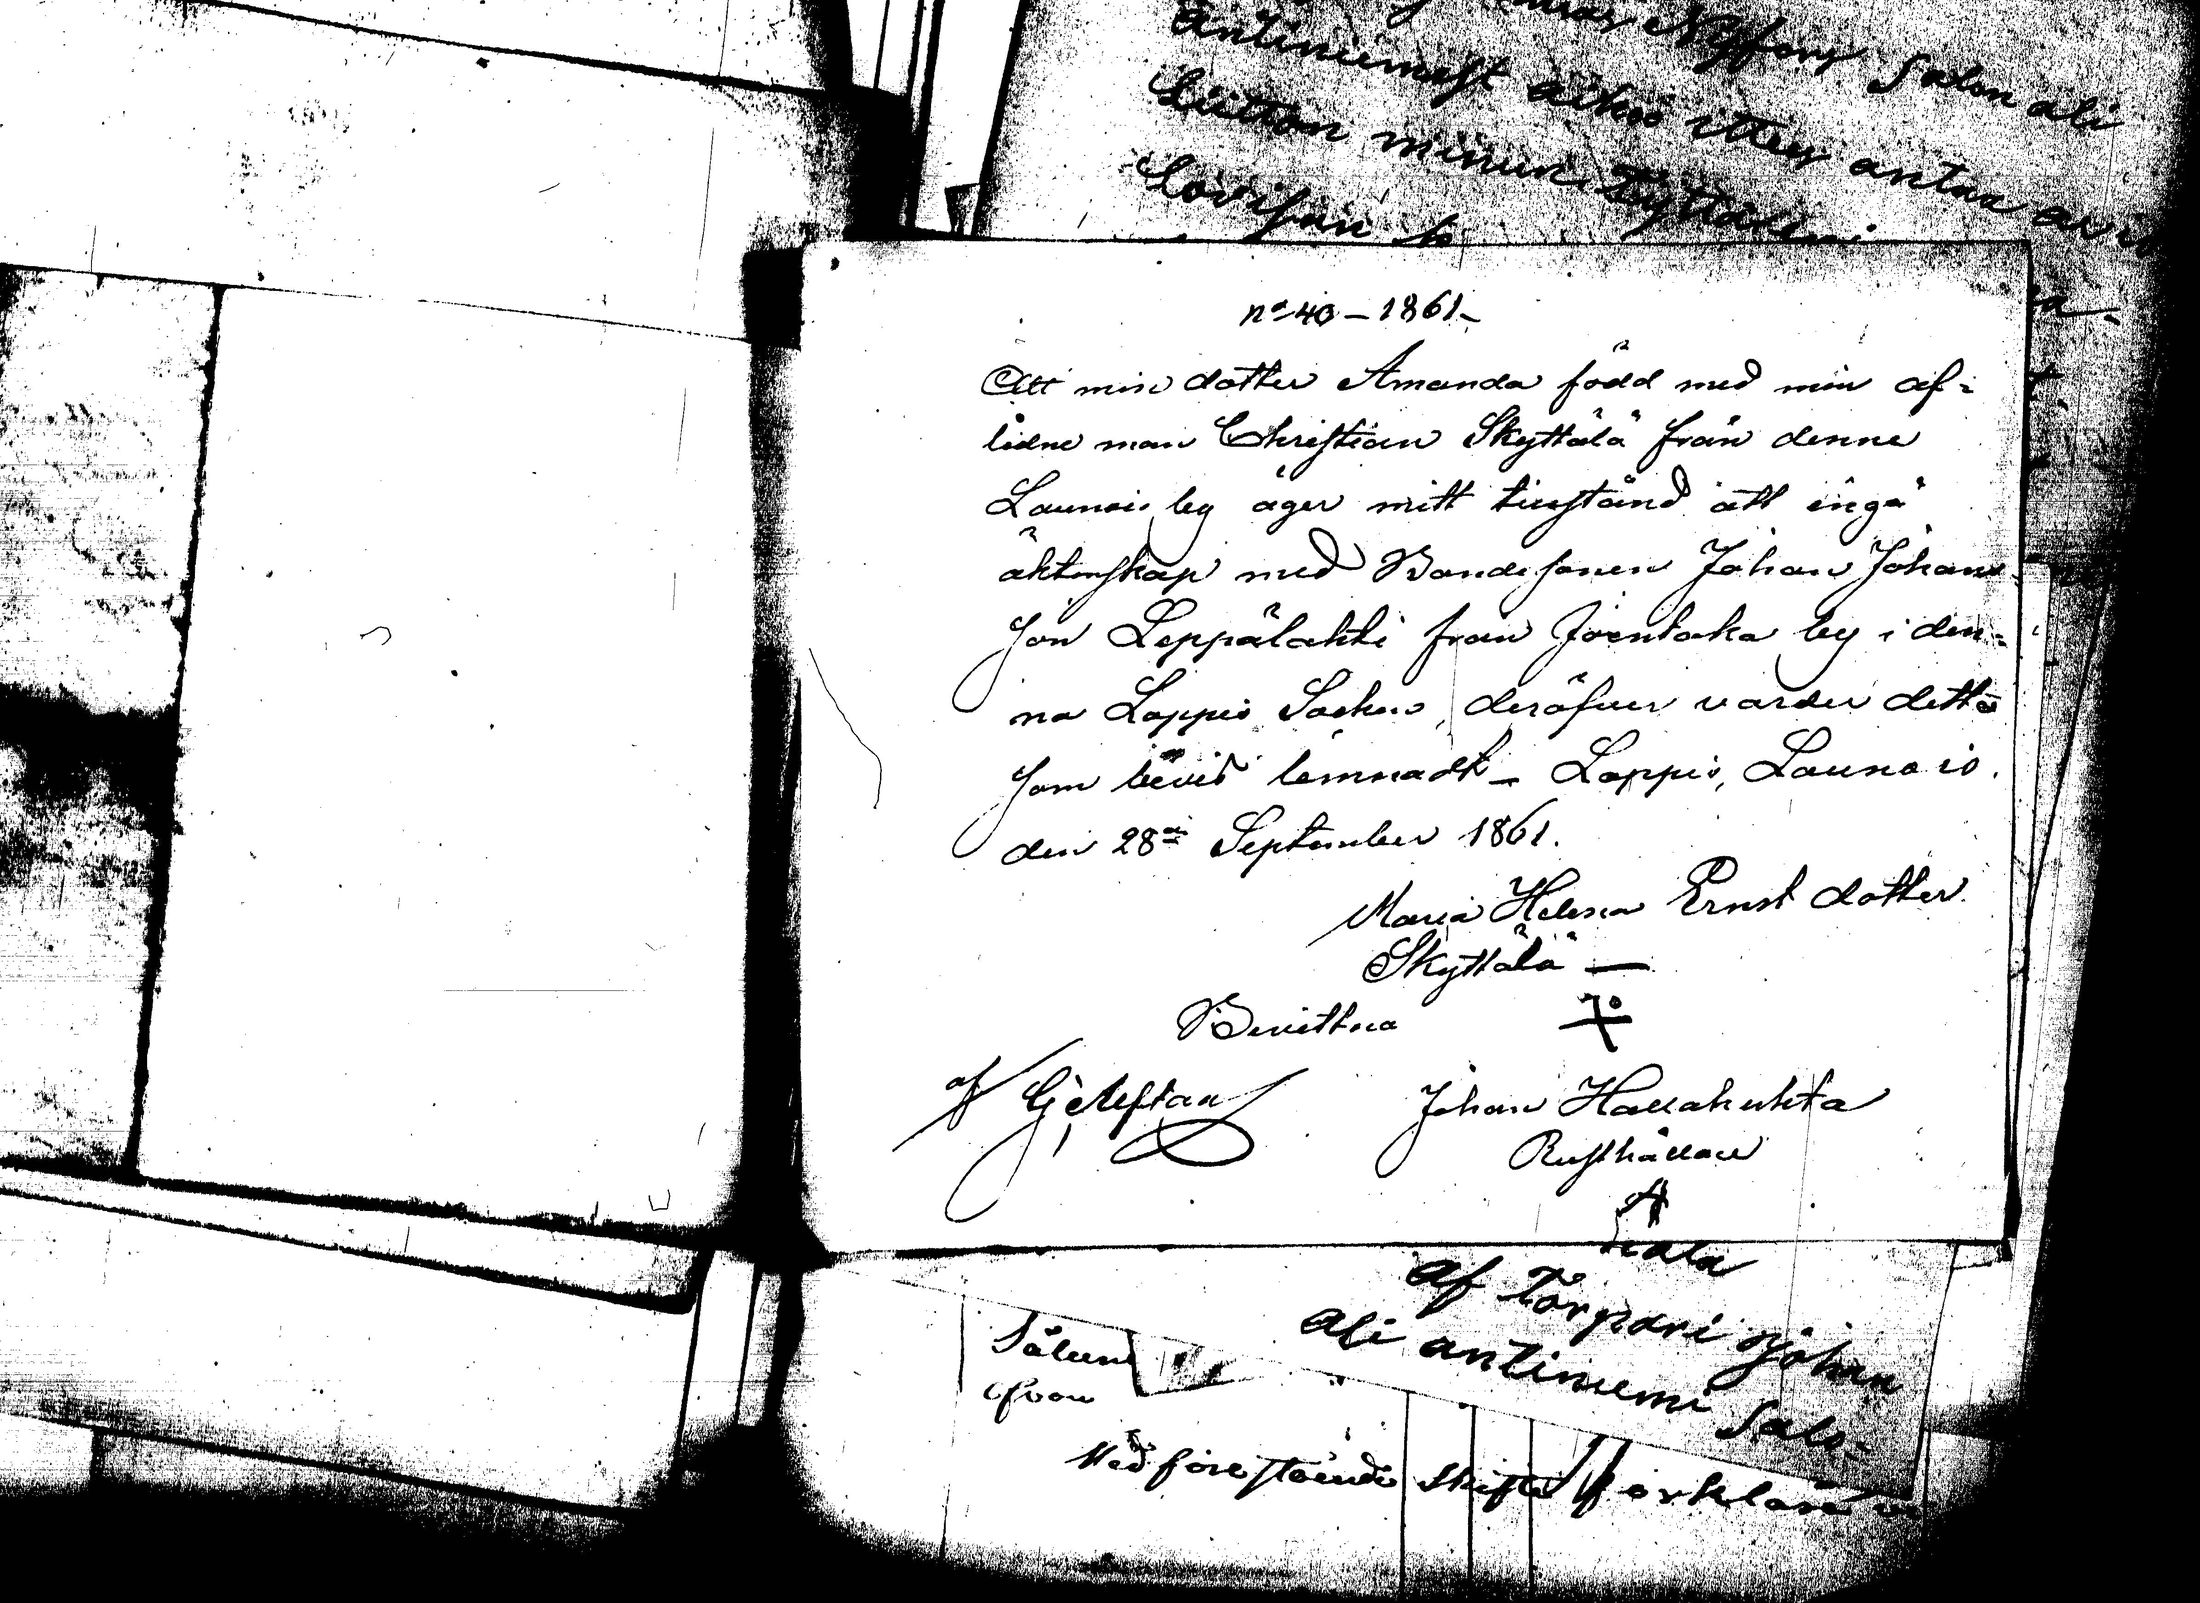 Nyfors Salon ali
antiniemest aikoo itten antaa
Liitton minun Tyttäreni
Lovisan
no 40 – 1861 –
Att min dotter Amanda född med min af-
lidne man Christian Skyttälä från denne
Launois by äger mitt tillstånd att ingå
äktenskap med Bondesonen Johan Johans
son Leppälahti från Joentaka by i den-
na Loppis Socken, deröfver varder detta
som bevis lemnadt – Loppis, Launois.
den 28de September 1861.
Maria Helena Ernst dotter
Skyttälä —
Bevittna
af Johan Hallakukta
Rusthållare
af Torpari Johan
ali antiniemi Salo-
från
Med förestående Skifte förklara